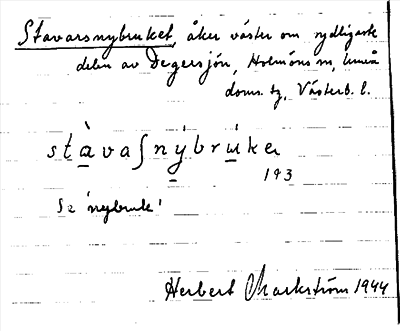 Stavarsnybruket, åker väster om sydligaste
delen av Degersjön, Holmöns sn, Umeå
doms. tg, Västerb. l.
stàvaʃnýbrúkeɹ
193
Se 'nybruk'
Herbert Markström 1944